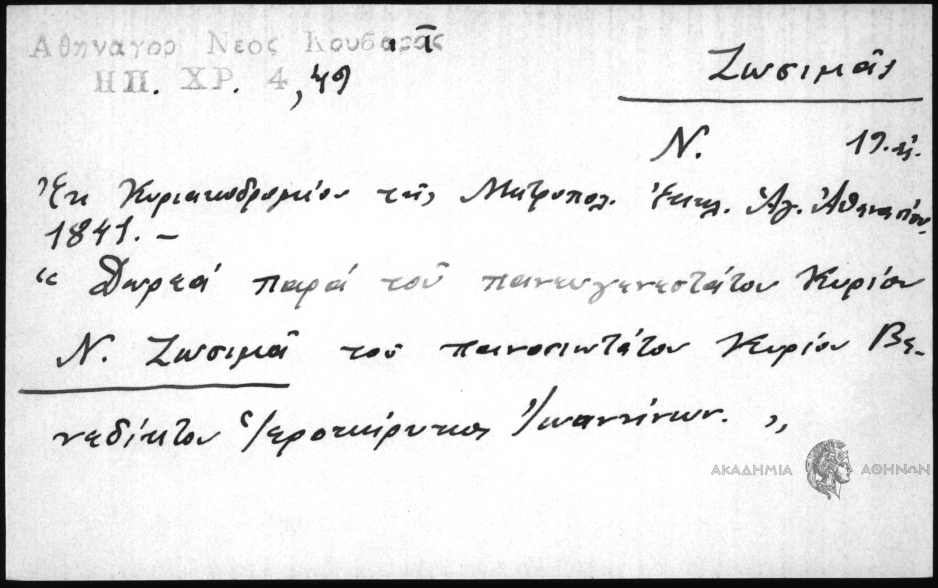 Αθηναγορ Νεος Κουβαρᾶς
ΗΠ. ΧΡ. 4, 49
Ζωσιμᾶς
Ν. 19. αἰ.
Ἐκ Κυριακοδρομίου τῆς Μητροπολ. Ἐκκλ. Ἁγ. Ἀθανασίου,
1841. –
“ Δωρεά παρά τοῦ πανευγενεστάτου Κυρίου
Ν. Ζωσιμᾶ τοῦ πανοσιωτάτου Κυρίου Βε-
νεδίκτου Ἱεροκήρυκος Ἰωαννίνων. ”
ΑΚΑΔΗΜΙΑ ΑΘΗΝΩΝ